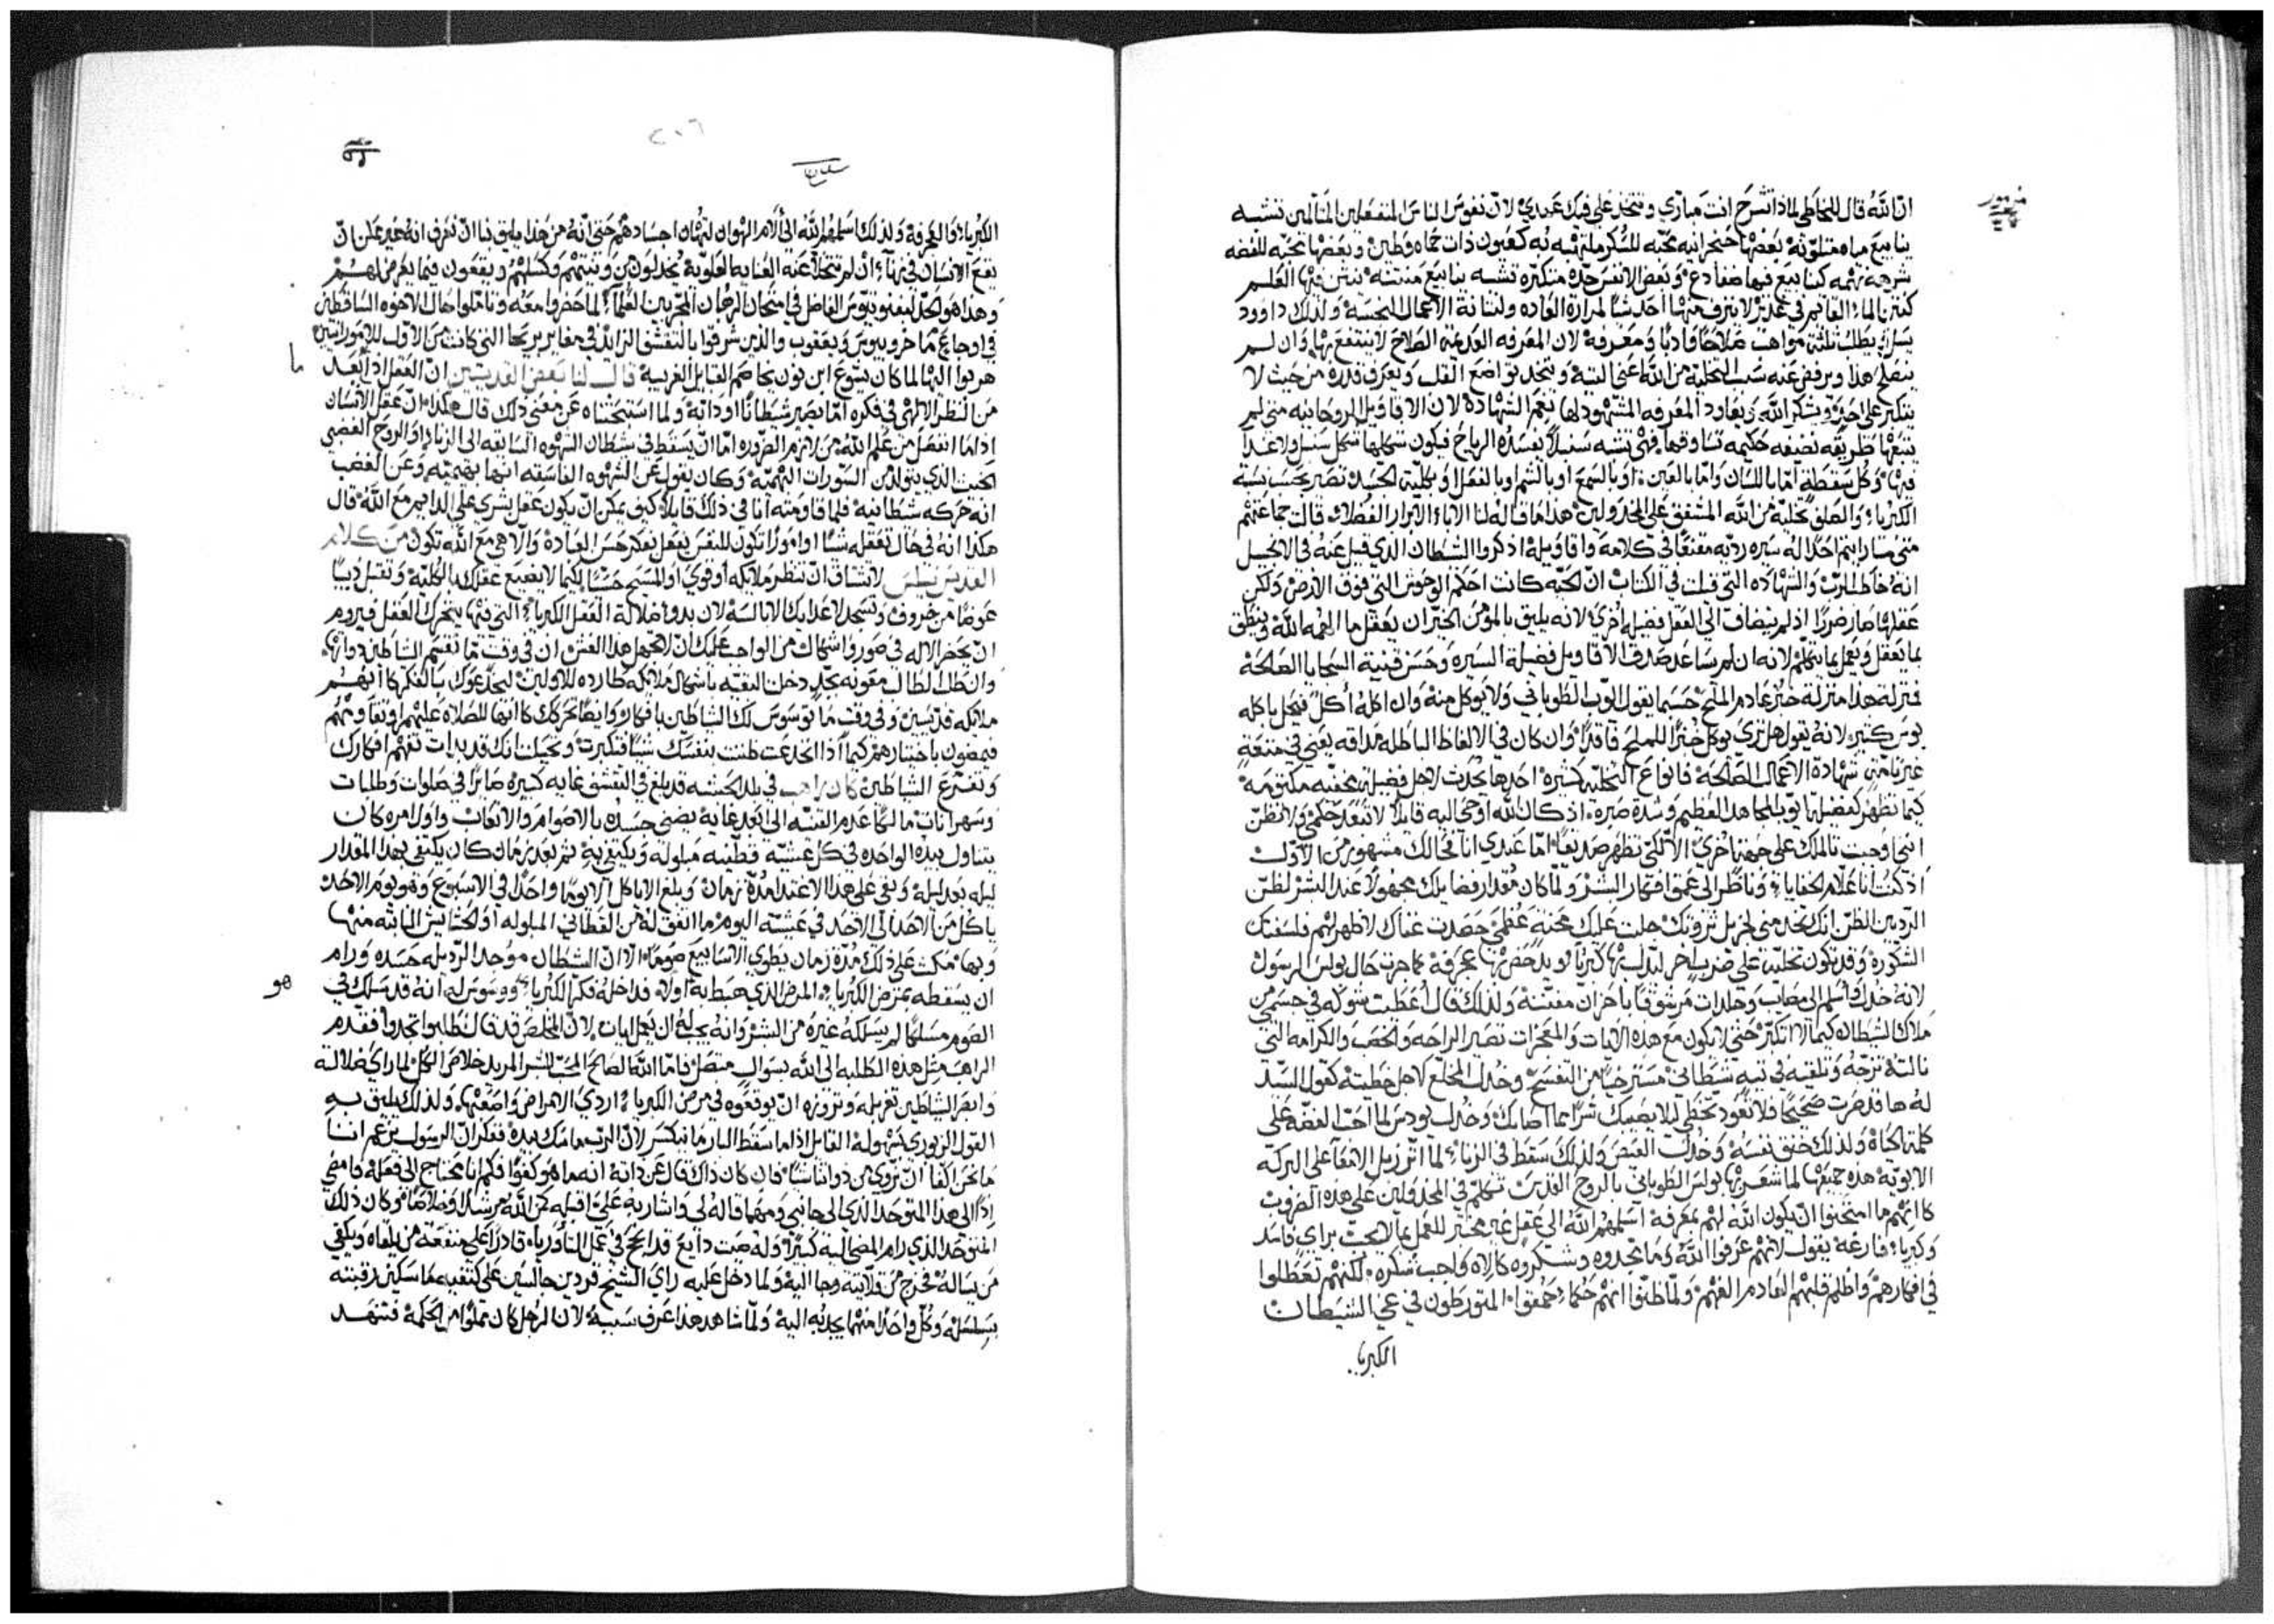 مزمور
ان الله قال للخاطي لماذا تشرح انت مباري وتتخذ على فيك عهدي لان نفوس الناس المنفعلين المتالمين تشبه
ينابيع مياه متلونة بعضها محبه للسكر كعيون ذات حماه وطين وبعضها محبه للفضه
كينابيع فيها ضفادع وبعض الانفس حده متكبره تشبه ينابيع منتنه العلم
لمرارة العاده ولنتانة الاعمال الحبيسه ولذلك داوود
يسل يطلب ثلثة مواهب صلاحًا وادبًا ومعرفة لان المعرفه العديمه الصلاح لا ينتفع بها وان لم
هذا ويرفض عنه سبب التخليه من الله اعني التيه ويتخذ تواضع القلب ويعرف قدره من حيث لا
يتكبر على احد ويشكر الله ويعاود المعرفه المشهود لها بنعم الشهادة لان الاقاويل الروحانيه متى لم
يتبعها طريقه نصيفه حكيمه تساوقها فهي تشبه سنبلاً يفسده الرياح فيكون شكلها شكل سنبل ولا غداً
فيها وكل سقطة اما باللسان واما بالعين او بالسمع او بالشم او بالفعل او بكلية الجسد تصير بحسب نسبة
الكبرياء والصلف تخلية من الله المشفق على المخذولين هذا ما قاله لنا الاباء الابرار الفضلاء قالت جماعتهم
متى ما رايتم احدًا له سيره رديه مقنعًا في كلامه واقاويله اذكروا الشيطان الذي قيل عنه في الانجيل
انه خاطب الرب والشهاده التي قيلت في الكتاب ان الحيه كانت احكم الوحوش التي فوق الارض ولكن
عقلها صار ضررًا اذ لم ينضاف الى العقل فضيله اخرى لانه يليق بالمومن الخير ان يعقل ما الهمه الله وينطق
بما يعقل ويعمل بما يتكلم لانه ان لم يساعد صدق الاقاويل فضيلة السيره وحسن قنية السجايا الصالحة
فمنزلة هذا منزلة خبز عادم الملح حسبما يقول ايوب الطوباني ولا يوكل منه وان اكله اكل فيحل باكله
بوس كثير لانه يقول هل ترى يوكل خبزًا للملح فاقدًا وان كان في الالفاظ الباطله مذاقه يعني في متعة
غير تامة شهادة الاعمال الصالحة فانواع التخليه كثيرة احدها يحدث لاجل فضيلة مخفيه مكتومة
كيما تظهر كفضيلة ايوب المجاهد العظيم وشدة صبره اذ كان الله اوحى اليه قايلاً لا تنفذ حكمي ولا تظن
انني اوحيت اليك على جهة اخرى الا لكي تظهر صديقًا اما عندي انا فحالك مشهور من الاول
اذ كنت انا علام الخفايا وناظرًا الى عمق افكار البشر ولما كان مقدار فضايلك مجهولاً عند البشر لظن
الرديين الظن انك تخدمني لجزيل ثروتك جلبت عليك محنة عظمى حصدت غناك لاظهر لهم فلسفتك
الشكورة وقد تكون تخلية على ضرب اخر كبرياء ويدحض بها عجرفة كما جرت حال بولس الرسول
لانه خذل واسلم الى مصايب وجلدات مرشوقًا باحزان مفتنة ولذلك قال اعطيت شوكه في جسمي من
ملاك الشيطان كيما لا اتكبر حتى لا يكون مع هذه الايات والمعجزات تصير الراحه والخصب والكرامه التي
نالته وتلقيه في تيه شيطاني مسترخيًا من التفسح وخذل المخلع لاجل خطيته كقول السيد
له ها قد صرت صحيحًا فلا تعود تخطي ليلا يصيبك شرًا مما اصابك وخذل يودس لما احب الفضه على
كلمة الحياة ولذلك خنق نفسه وخذلت العيص ولذلك سقط في الزناء لما اثر زبل الامعا على البركة
الابوية هذه جميعها لما شعر بها بولس الطوباني بالروح القدس تكلم في المخذولين على هذه الضروب
كما انهم ما امتحنوا ان يكون الله لهم بمعرفة اسلمهم الله الى عقل غير مختبر للعمل بما لا يجب براي فاسد
وكبرياء فارغه يقول لانهم عرفوا الله وما تمجدوه وشكروه كالاه كواجب شكره لكنهم تعطلوا
في افكارهم واظلم قلبهم العادم الفهم ولما ظنوا انهم حكماء حمقوا المتورطون في عي الشيطان
الكبرياء
٢١٦
الكبرياء والعجرفة ولذلك اسلمهم الله الى آلام الهوان لتهان اجسادهم حتى انه من هذا يليق بنا ان نعرف انه غير ممكن ان
يقع الانسان في زناء ان لم تتخلا عنه العنايه العلوية يخذلون من ونيتهم وكسلهم ويقعون فيما يعرض لهم
وهذا هو الحل لمعنوديوس الفاضل في امتحان الرهبان المجربين لما حضروا معه وتاملوا حال الاخوه الساقطين
في اوجاع ما خرونيوس ويعقوب والذين شرفوا بالتقشف الزايد في مغاير بريحا التي كانت من الاول للاموراتيين
هربوا اليها لما كان يشوع ابن نون يخاصم القبايل الغريبة قال لنا بعض القديسين ان العقل اذا بعد
من النظر الالهي في فكره اما يصير شيطانًا او دابة ولما استبحثناه عن معنى ذلك قال هكذا ان عقل الانسان
اذا ما انفصل من علم الله من لازم الضروره اما ان يسقط في شيطان الشهوه السايقه الى الزناء او الروح الغضبي
الخبيث الذي يتولد من السورات البهيمية وكان يقول عن الشهوه الفاسقه انها بهيميه وعن الغضب
انه حركه شيطانيه فلما قاومته انا في ذلك قايلاً كيف يمكن ان يكون عقل بشري على الدايم مع الله قال
هكذا انه في حال تعقله شيئًا او امورًا تكون للنفس بعقل بفكر حسن العبادة والاهي مع الله تكون من كلام
القديس نيلس لا تشتاق ان تنظر ملايكه او قوى او المسيح حسيًا لكيما لا يضيع عقلك بالكلية وتقبل ذيبًا
عوضًا من خروف وتسجد لاعدايك الابالسة لان بدو ضلالة العقل الكبرياء التي فيها يتحرك العقل فيروم
ان يحصر الاله في صور واشكال من الواجب عليك ان لا تجهل هذا الغش ان في وقت ما تقسم الشياطين ذواتها
وان طلبت لطالب معونه تجد دخل البقيه باشكال ملايكه طارده للاولين لتخدعوك بالفكر كانهم
ملايكه قديسين وفي وقت ما توسوس لك الشياطين بافكار وايضًا تحركك كانها للصلاه عليهم وتقاومهم
فيمضون باختيارهم كيما اذا انخدعت ظننت بنفسك شيئًا فتكبرت وتخيلت انك قد بدات تفهم افكارك
وتفزع الشياطين كان راهب في بلد الحبشه قد بلغ في التقشف غايه كبيره صابرًا في صلوات وطلبات
وسهراتات مالكًا عدم القنيه الى ابعد غاية يضني جسده بالاصوام والاتعاب واول امره كان
يتناول بيده الواحده في كل عشية قطنيه مبلوله ويكتفي به ثم بعد زمان كان يكتفي بهذا المقدار
ليله بعد ليلة وبقي على هذا الاغتدا مدة زمان وبلغ الا ياكل الا يومًا واحدًا في الاسبوع وهو يوم الاحد
ياكل من الاحد الى الاحد في عشية اليوم ما اتفق له من القطاني المبلوله او الحشايش النابته منها
وبها مكث على ذلك مدة زمان يطوي الاسابيع صومًا الا ان الشيطان موجد الرذيله حسده ورام
ان يسقطه بمرض الكبرياء المرض الذي هبط به اولاً فداخله فكر الكبرياء ووسوس له انه قد سلك في
هو
الصوم مسلكًا لم يسلكه غيره من البشر وانه يجب له ان يعمل ايات لان المخلص قد قال اطلبوا تجدوا فقدم
الراهب مثل هذه الطلبه الى الله بسوال متصل فاما الله الصالح المحب للبشر المريد خلاص الكل لما راى ضلالة
وابصر الشياطين تغربله وتروزه ان يوقعوه في مرض الكبرياء اردى الامراض واصعبها ولذلك يليق به
القول الزبوري بسهولة القايل اذا ما سقط البار ما ينكسر لان الرب ماسك بيده ففكر ان الرسول يزعم اننا
ما نحن اكفا ان نروي من ذواتنا شيئًا فان كان ذاك قال عن ذاته انه ما هو كفوًا فكم انا محتاج الى فعله فامضي
اذًا الى هذا المتوحد الذي الى جانبي ومهما قاله لي واشار به علي اقبله كمن الله مرشدًا وخلاصًا وكان ذلك
المتوحد الذي رام المضي اليه كبيرًا وله صيت ذايع قد انجح في عمل الثاوريا قادرًا على منفعة من يلقاه ويكفي
من يساله فخرج من قلايته وجا اليه ولما دخل عليه راى الشيخ قردين جالسين على كتفيه ماسكين رقبته
بسلسله وكل واحدًا منهما يجذبه اليه ولما شاهد هذا عرف سببه لان الرجل كان مملوًا من الحكمة فتنهد